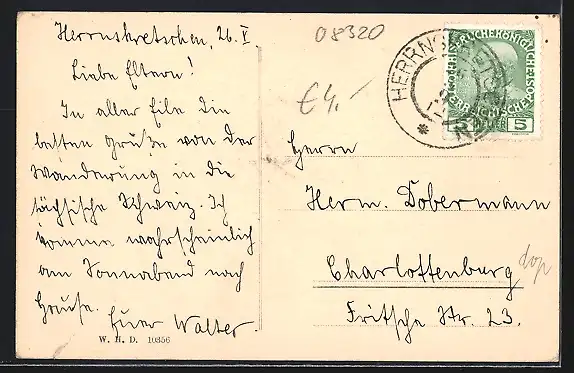 Herrnskretschen, 26. V
Liebe Eltern!
In aller Eile die
besten Grüße von der
Wanderung in die
sächsische Schweiz. Ich
komme wahrscheinlich
am Sonnabend nach
Hause.
Euer Walter.
W. H. D. 10356
08320
€4,-
HERRNS
5
Herrn
Herm. Dobermann
Charlottenburg
Fritsche Str. 23.
dop